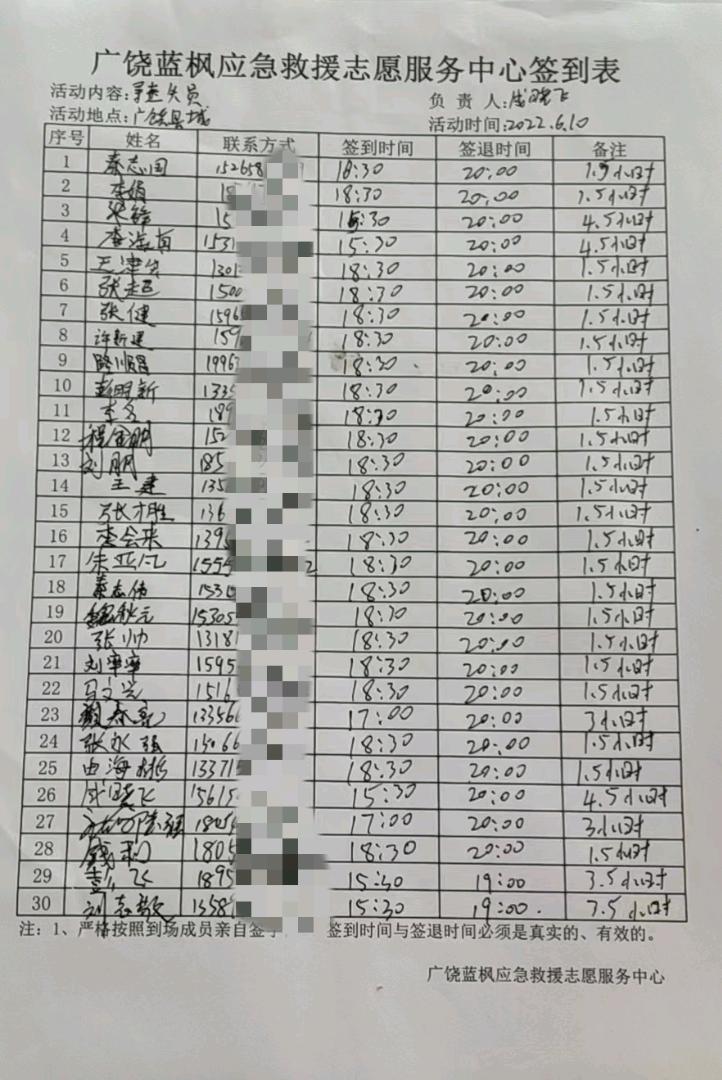 广饶蓝枫应急救援志愿服务中心签到表
活动内容:寻查失员 负责人:成晓飞
活动地点:广饶县城 活动时间:2022.6.10
序号 姓名 联系方式 签到时间 签退时间 备注
1 秦志国 152658 18:30 20:00 1.5小时
2 李娟 18:30 20:00 1.5小时
3 15 15:30 20:00 4.5小时
4 李海南 1531 15:30 20:00 4.5小时
5 王津生 1301 18:30 20:00 1.5小时
6 张超 1500 18:30 20:00 1.5小时
7 张健 1596 18:30 20:00 1.5小时
8 许新建 159 18:30 20:00 1.5小时
9 路顺昌 1996 18:30 20:00 1.5小时
10 彭明新 1335 18:30 20:00 1.5小时
11 189 18:30 20:00 1.5小时
12 程金明 152 18:30 20:00 1.5小时
13 刘朋 185 18:30 20:00 1.5小时
14 王建 135 18:30 20:00 1.5小时
15 张才胜 136 18:30 20:00 1.5小时
16 李会来 139 18:30 20:00 1.5小时
17 朱亚凡 155 2 18:30 20:00 1.5小时
18 秦志伟 1531 18:30 20:00 1.5小时
19 魏秋元 15305 18:30 20:00 1.5小时
20 张帅 13181 18:30 20:00 1.5小时
21 刘宰宰 1595 18:30 20:00 1.5小时
22 马文光 1516 18:30 20:00 1.5小时
23 133566 17:00 20:00 3小时
24 张永强 15066 18:30 20:00 1.5小时
25 由海彬 13371 18:30 20:00 1.5小时
26 成晓飞 15615 15:30 20:00 4.5小时
27 17:00 20:00 3小时
28 钱利 1805 18:30 20:00 1.5小时
29 彭飞 1895 15:30 19:00 3.5小时
30 刘志毅 1558 15:30 19:00. 3.5小时
注:1、严格按照到场成员亲自签字 签到时间与签退时间必须是真实的、有效的。
广饶蓝枫应急救援志愿服务中心